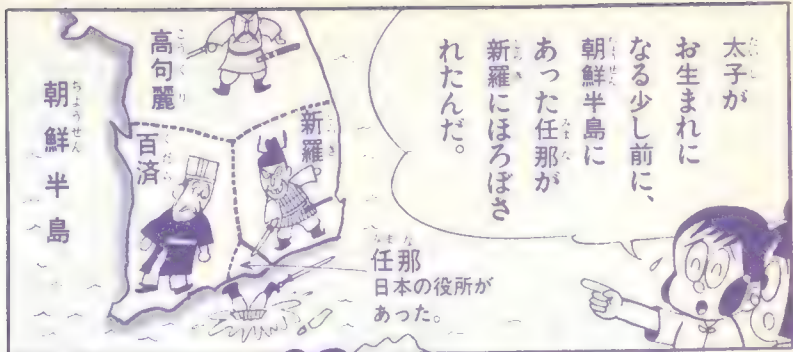 太子が
お生まれに
なる少し前に、
朝鮮半島に
あった任那が
新羅にほろぼさ
れたんだ。
高句麗
新羅
百済
朝鮮半島
任那
日本の役所が
あった。